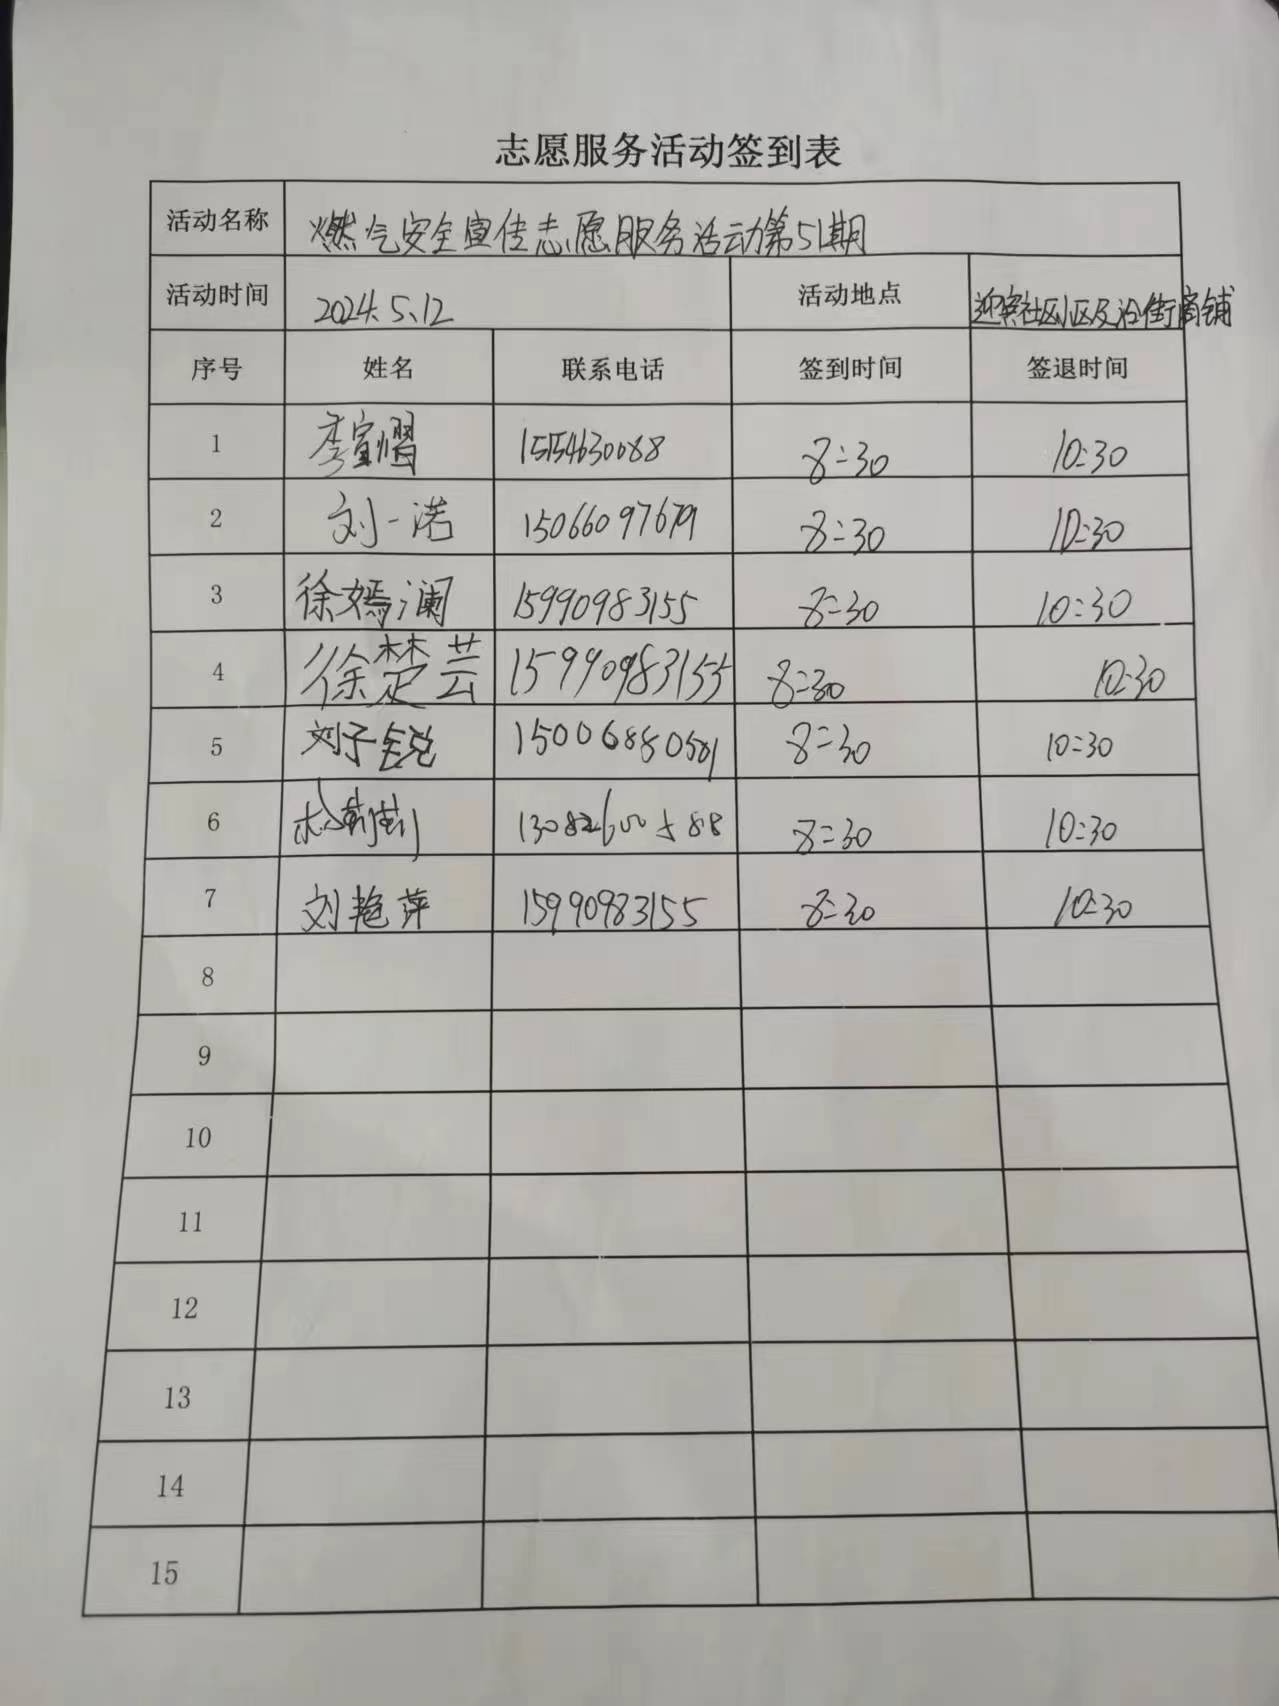 志愿服务活动签到表
活动名称 燃气安全宣传志愿服务活动第51期
活动时间 2024.5.12 活动地点 迎宾社区小区及沿街商铺
序号 姓名 联系电话 签到时间 签退时间
1 李宣熠 15154630088 8:30 10:30
2 刘一诺 15066097679 8:30 10:30
3 徐嫣澜 15990983155 8:30 10:30
4 徐楚芸 15990983155 8:30 10:30
5 刘子锐 15006880581 8:30 10:30
6 8:30 10:30
7 刘艳萍 15990983155 8:30 10:30
8
9
10
11
12
13
14
15